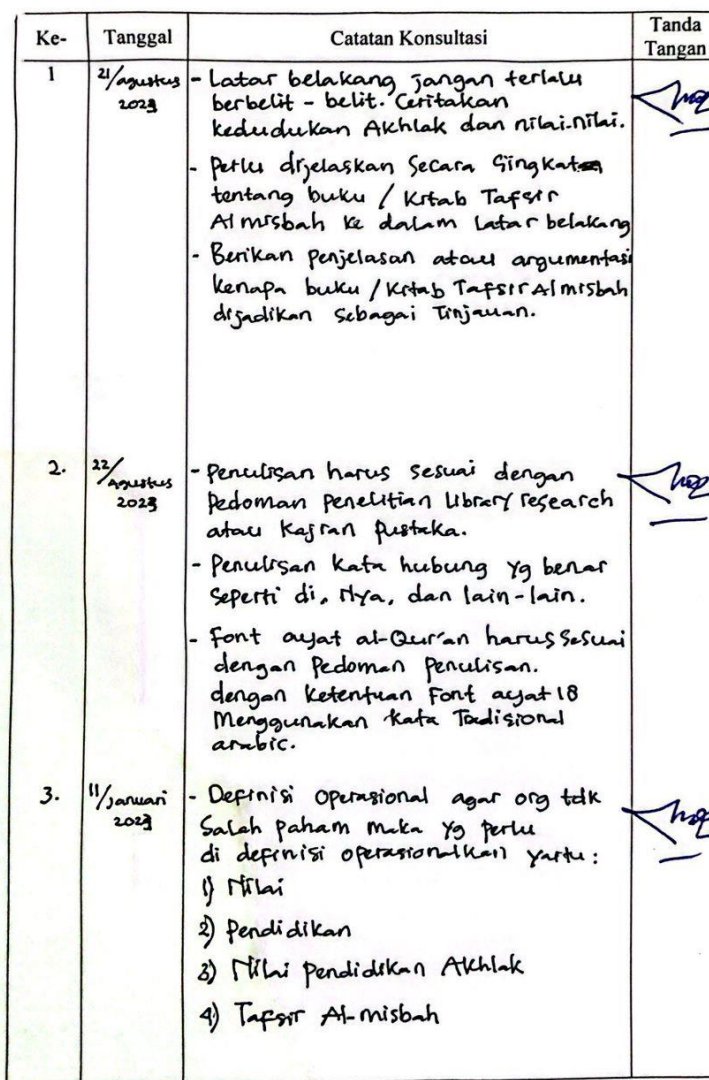 Ke- Tanggal Catatan Konsultasi Tanda Tangan
1 21/agustus 2023 - Latar belakang jangan terlalu
berbelit - belit. Ceritakan
kedudukan Akhlak dan nilai-nilai.
- Perlu dijelaskan Secara Singkat
tentang buku / Kitab Tafsir
Al misbah ke dalam Latar belakang
- Berikan Penjelasan atau argumentasi
kenapa buku / Kitab Tafsir Al misbah
dijadikan Sebagai Tinjauan.
2. 22/Agustus 2023 - Penulisan harus sesuai dengan
Pedoman Penelitian Library research
atau Kajian Pustaka.
- Penulisan kata hubung yg benar
seperti di, Nya, dan lain-lain.
- Font ayat al-Qur'an harus Sesuai
dengan Pedoman Penulisan.
dengan ketentuan Font ayat 18
Menggunakan kata Tradisional
arabic.
3. 11/Januari 2023 - Definisi Operasional agar org tdk
Salah paham maka yg perlu
di definisi operasionalkan yaitu :
1) Nilai
2) Pendidikan
3) Nilai Pendidikan Akhlak
4) Tafsir Al-misbah